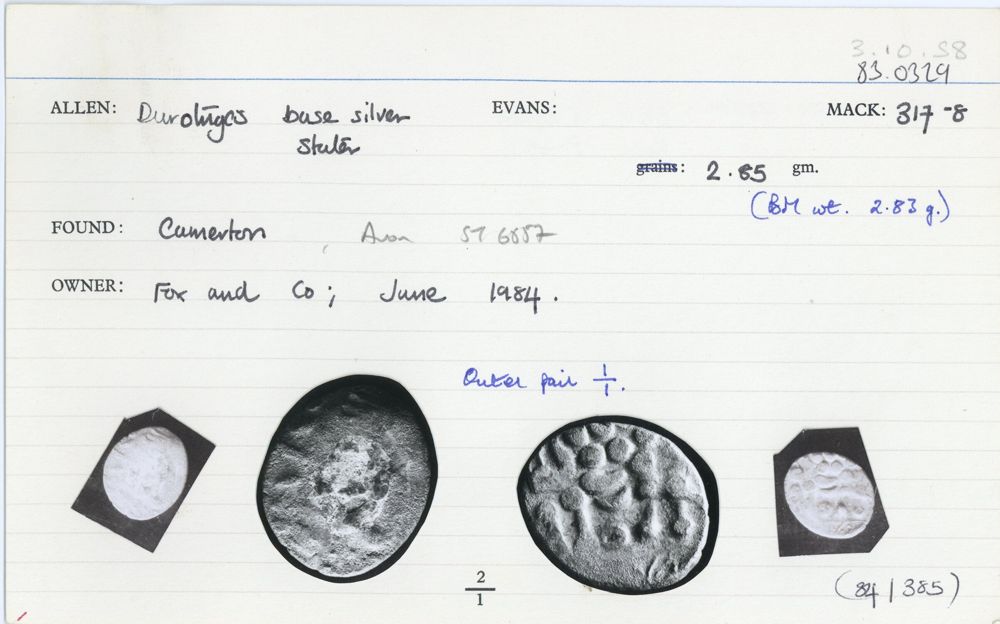 3.10.58
83.0329
ALLEN: Durotriges base silver EVANS: MACK: 317-8
stater
grains: 2.85 gm.
(BM wt. 2.83 g.)
FOUND: Camerton, Avon ST 6857
OWNER: Fox and Co; June 1984.
Outer pair 1/1.
2/1
(84/385)